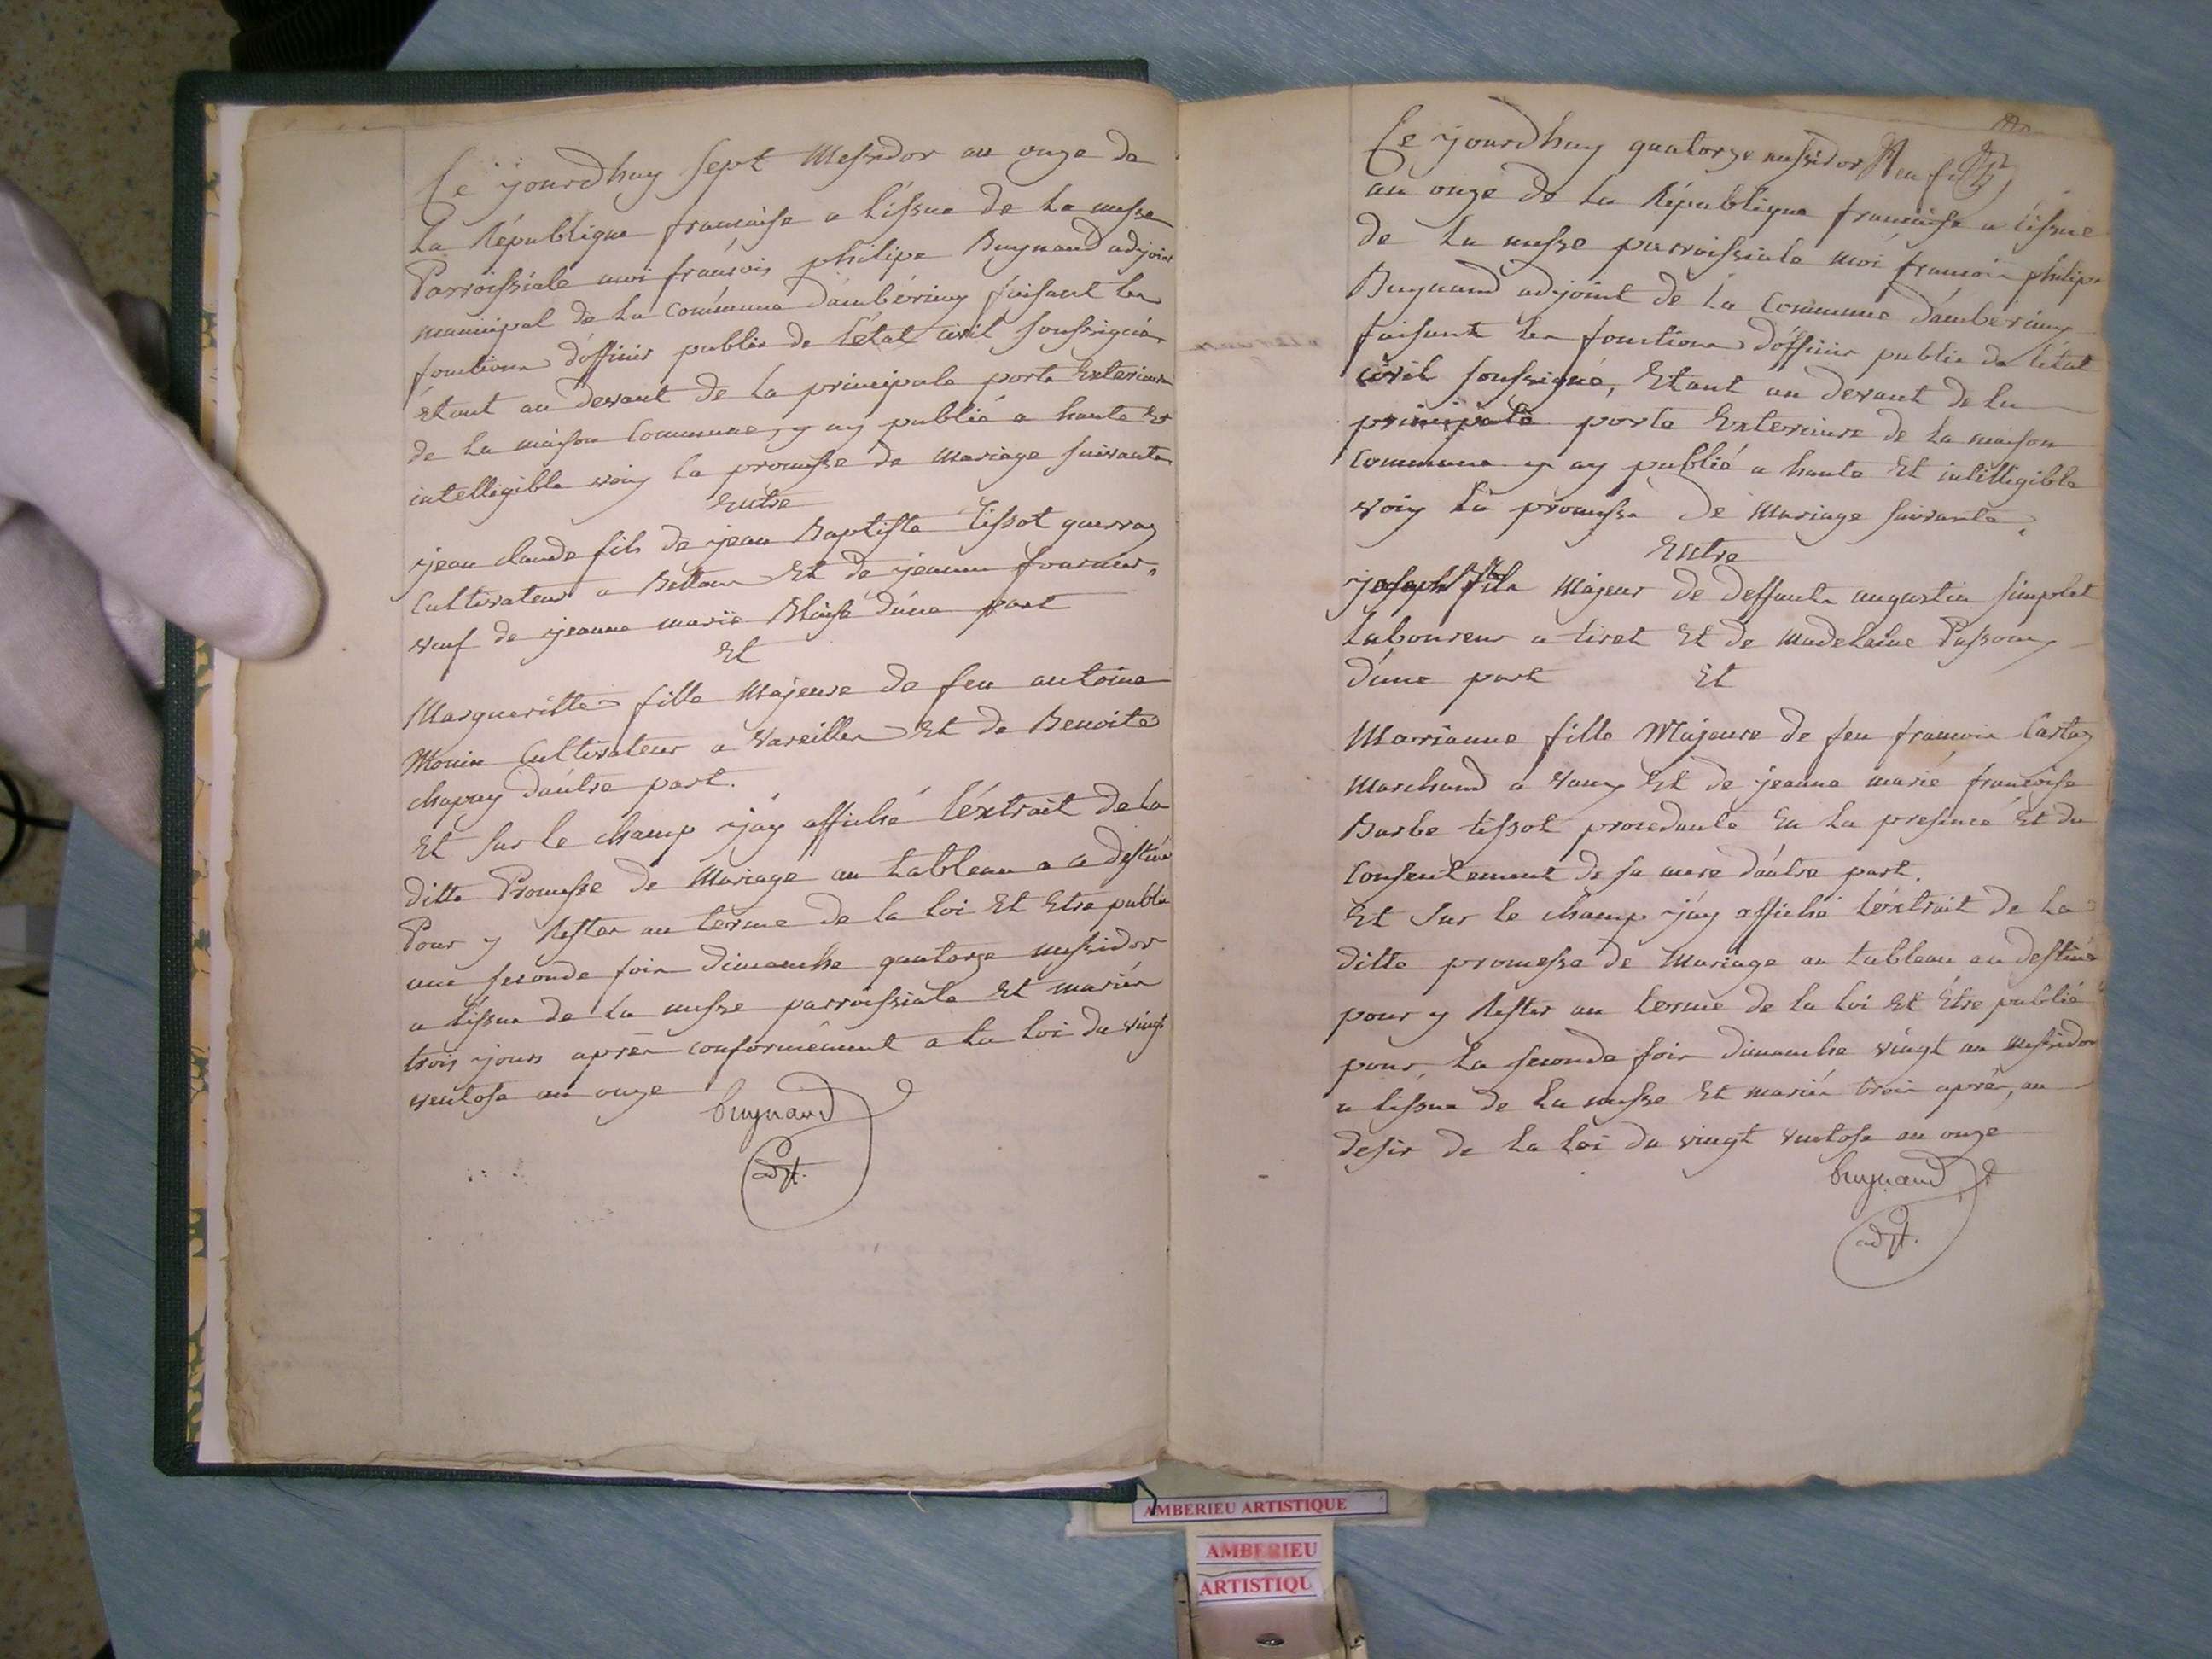 Ce yourdhuy sept Messidor an onze de
La République francaise a l'issue de la messe
Parroissiale moi francois philipe Buynand adjoint
municipal de la Commune d'amberieuy faisant les
fonctions d'officier public de l'état civil soussigné
étant au devant de la principale porte Exterieure
de la maison Commune, y ay publié a haute Et
intelligible voiy la promesse de mariage suivante
Entre
jean claude fils de jean Baptiste tissot guerraz
Cultivateur a Bettan Et de jeanne fournier,
veuf de jeanne marie Blaise d'une part
Et
Margueritte fille Majeure de feu antoine
Monin Cultivateur a Vareilles Et de Benoite
chapuy d'autre part.
Et sur le champ j'ay affiché l'éxtrait de la
ditte Promesse de Mariage au tableau a ce destiné
Pour y Rester au terme de la loi Et Etre publié
une seconde fois dimanche quatorze messidor
a l'issue de la messe parroissiale Et mariés
trois jours après conformément a la loi du vingt
ventose an onze
buynand
adjt.
Ce yourdhuy quatorze messidor
an onze de la République francaise a l'issue
de la messe parroissiale moi francois philipe
Buynand adjoint de la Commune d'amberieuy
faisant les fonctions d'officier public de l'état
civil soussigné, Etant au devant de la
principale porte Exterieure de la maison
Commune y ay publié a haute Et intelligible
voiy la promesse de Mariage suivante,
Entre
joseph fils Majeur de deffunts augustin simplet
Laboureur a tiret Et de Madelaine Passony
d'une part Et
Marrianne fille Majeure de feu francois Cartaz
Marchand a Vaux Et de jeanne marie françoise
Barbe tissot procedante En la presence Et du
Consentement de sa mere d'autre part.
Et Sur le champ j'ay affiché l'éxtrait de la
ditte promesse de Mariage au tableau au destiné
pour y Rester au terme de la loi Et Être publié
pour la seconde fois dimanche vingt un messidor
a l'issue de la messe Et mariés trois après, au
desir de la loi du vingt ventose an onze
buynand
adjt.
AMBERIEU ARTISTIQUE
AMBERIEU
ARTISTIQU